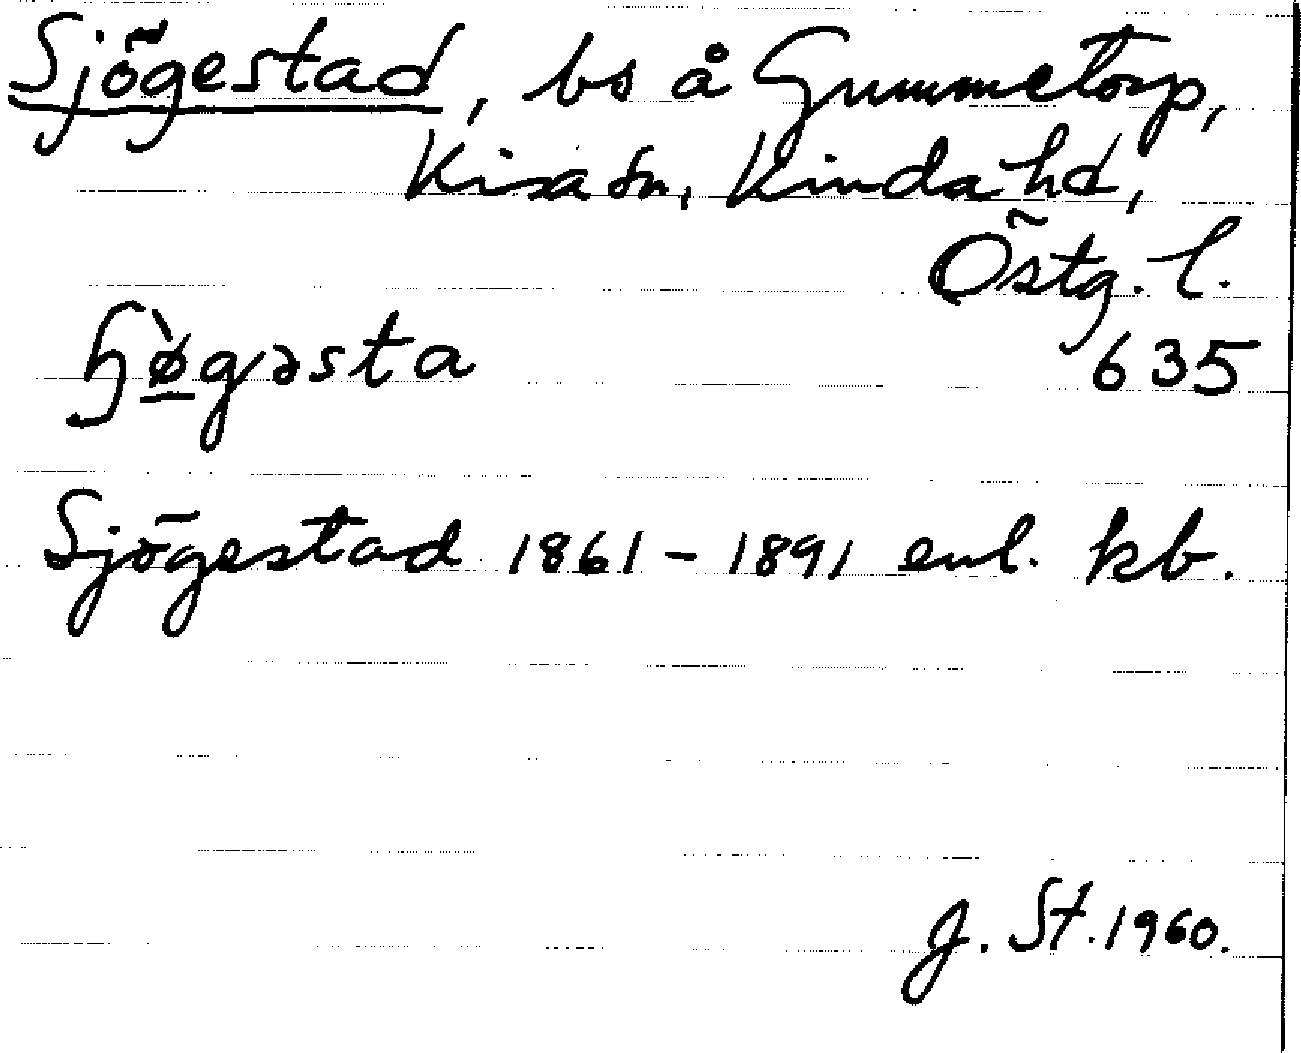 Sjögestad, bs å Gummetorp,
Kisa sn, Kinda hd,
Östg. l.
ɧø̀gəsta 635
Sjögestad 1861-1891 enl. kb.
J. St. 1960.